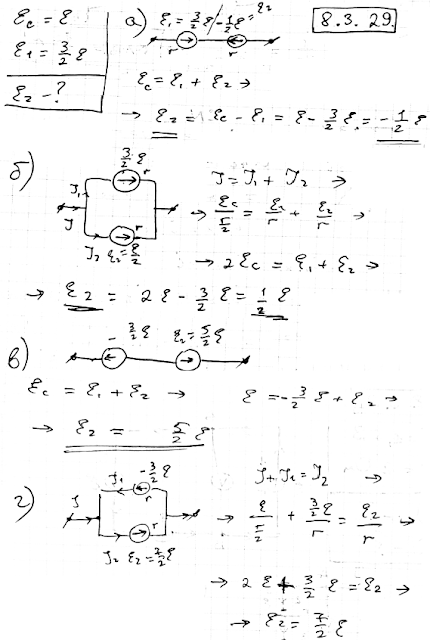 8.3.29.
ℰc = ℰ
ℰ1 = 3/2 ℰ
ℰ2 - ?
а) ℰ1 = 3/2 ℰ -1/2 ℰ = ℰ2
r r
ℰc = ℰ1 + ℰ2 →
→ ℰ2 = ℰc - ℰ1 = ℰ - 3/2 ℰ = -1/2 ℰ
б) 3/2 ℰ
r
J1
J
r
J2 ℰ2 = ℰ/2
J = J1 + J2 →
→ ℰc/(r/2) = ℰ1/r + ℰ2/r →
→ 2ℰc = ℰ1 + ℰ2 →
→ ℰ2 = 2ℰ - 3/2 ℰ = 1/2 ℰ
в) - 3/2 ℰ ℰ2 = 5/2 ℰ
ℰc = ℰ1 + ℰ2 → ℰ = -3/2 ℰ + ℰ2 →
→ ℰ2 = 5/2 ℰ
г) J1 -3/2 ℰ
r
J
r
J2 ℰ2 = 7/2 ℰ
J + J1 = J2 →
→ ℰ/(r/2) + (3/2 ℰ)/r = ℰ2/r →
→ 2ℰ + 3/2 ℰ = ℰ2 →
→ ℰ2 = 7/2 ℰ